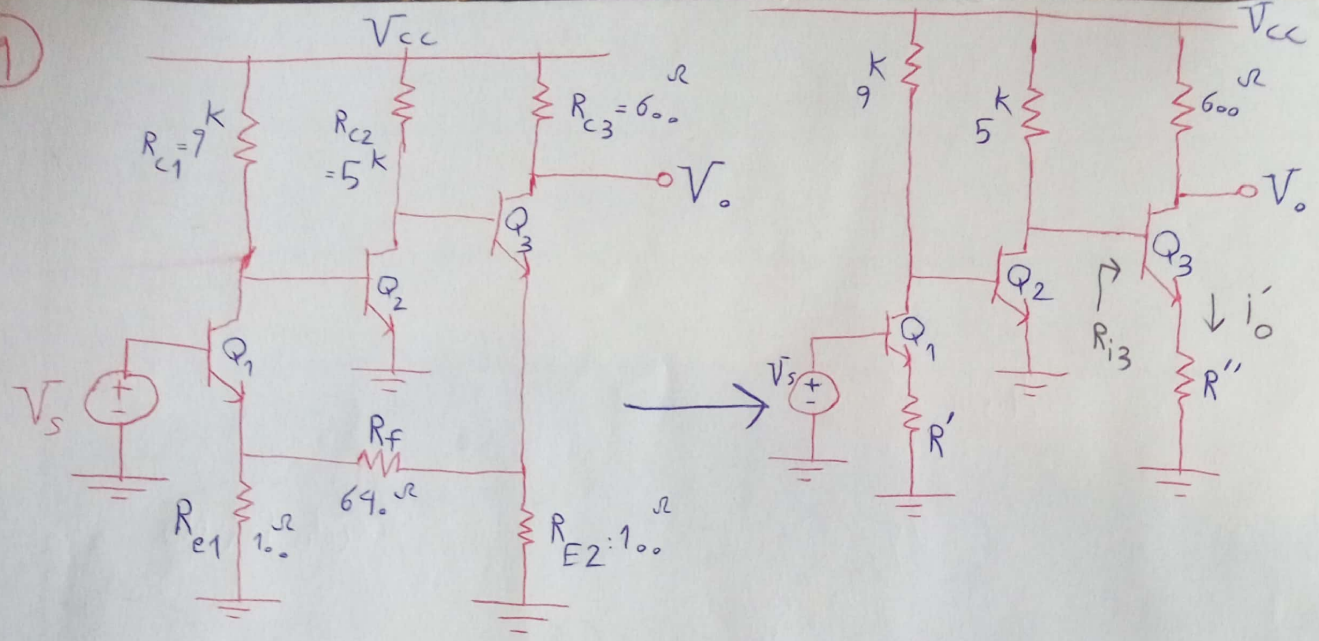 1
Vcc
Rc1=9K
Rc2
=5K
Rc3=600Ω
Vo
Q1
Q2
Q3
Vs
+
-
Rf
640Ω
Re1 100Ω
RE2:100Ω
Vcc
9K
5K
600Ω
Vo
Q1
Q2
Q3
Vs
+
-
Ri3
i'o
R'
R"